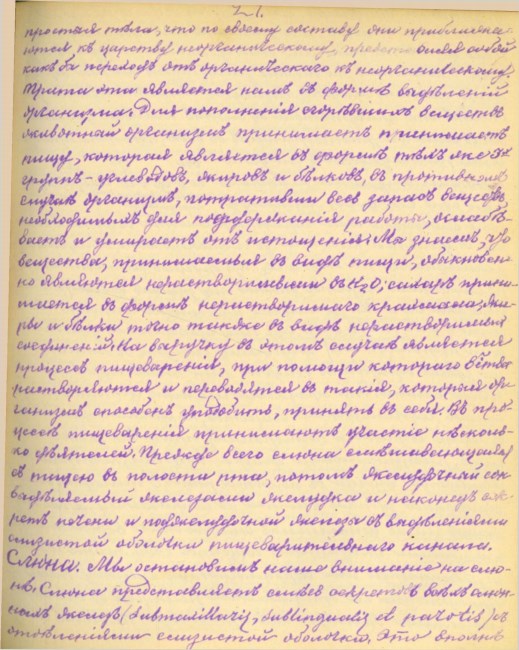 21.
простыя тѣла, что по своему составу они приближа-
ются къ царству неорганическому, представляя собой
какъ бы переходъ отъ органическаго къ неорганическому.
Трата эта является намъ въ формѣ выдѣленій
организма. Для пополненія сгорѣвшихъ веществъ
животный организмъ принимаетъ принимаетъ
пищу, которая является въ формѣ тѣлъ же 3х
группъ – углеводовъ, жировъ и бѣлковъ, въ противномъ
случаѣ организмъ, потративши весь запасъ веществъ
необходимыхъ для поддержанія работы, ослабѣ-
ваетъ и умираетъ отъ истощенія. Мы знаемъ, что
вещества, принимаемыя въ видѣ пищи, обыкновен-
но являются нерастворимыми въ H2O; сахаръ прини-
мается въ формѣ нерастворимаго крахмала, жи-
ры и бѣлки точно также въ видѣ нерастворимыхъ
соединеній. На выручку въ этомъ случаѣ является
процессъ пищеваренія, при помощи котораго вещества
растворяются и переводятся въ такія, которыя ор-
ганизмъ способенъ уподобить, принять въ себя. Въ про-
цессѣ пищеваренія принимаютъ участіе нѣсколь-
ко дѣятелей. Прежде всего слюна смѣшивающаяся
съ пищею въ полости рта, потомъ желудочный сокъ
выдѣляемый железами желудка и наконецъ сек-
ретъ печени и поджелудочной железы съ выдѣленіями
слизистой оболочки пищеварительнаго канала.
Слюна. Мы остановимъ наше вниманіе на слю-
нѣ. Слюна представляетъ смѣсь секретовъ всѣхъ слюн-
ныхъ железъ (submaxillaris, sublingualis et parotis) съ
отдѣленіями слизистой оболочки. Это вполнѣ